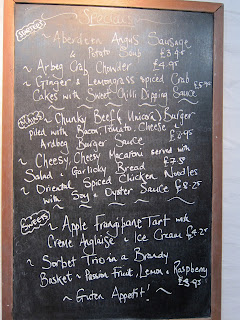 Specials
STARTERS
~ Aberdeen Angus Sausage
& Potato Soup £3.95
~ Arbeg Crab Chowder £4.95
~ Ginger & Lemongrass Spiced Crab
Cakes with Sweet Chilli Dipping Sauce
MAINS
~ Chunky Beef (& Unicorn) Burger
piled with Bacon, Tomato, Cheese &
Ardbeg Burger Sauce
~ Cheesy, Cheesy Macaroni served with
Salad & Garlicky Bread £7.50
~ Oriental Spiced Chicken Noodles
with Soy & Oyster Sauce £8.25
SWEETS
~ Apple Frangipane Tart with
Crème Anglaise & Ice Cream £4.25
~ Sorbet Trio in a Brandy
Basket ~ Passion Fruit, Lemon & Raspberry
£3.95
~ Guten Appetit! ~